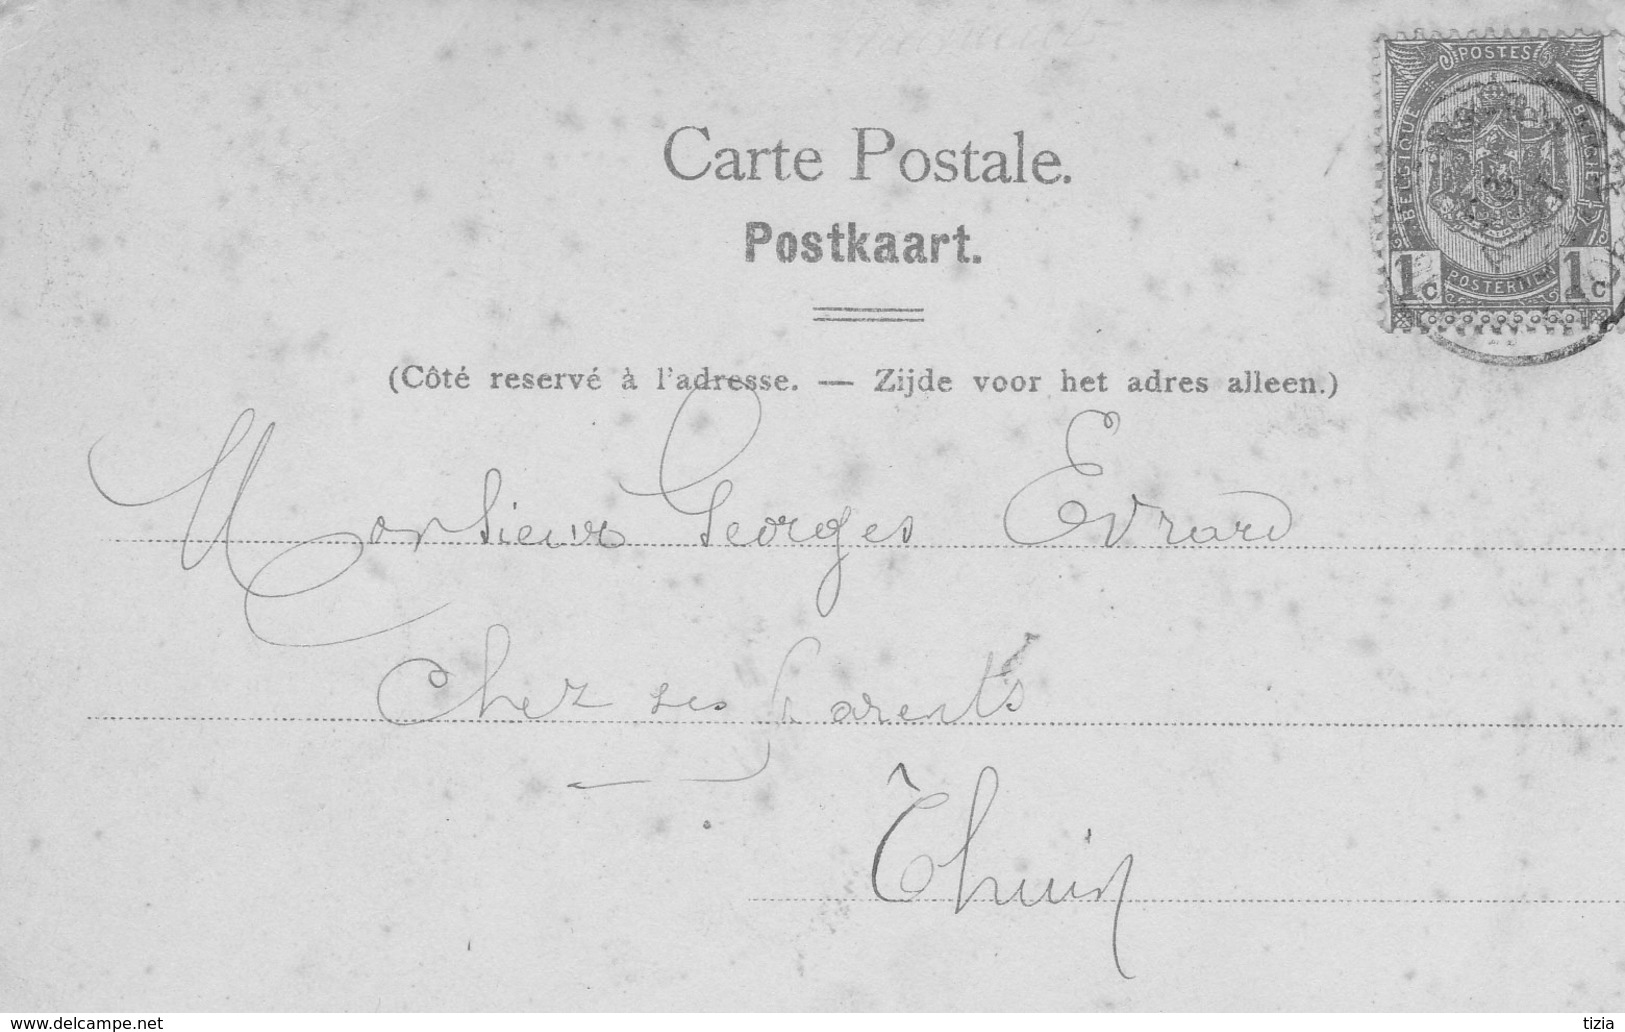 Carte Postale.
Postkaart.
POSTES
BELGIQUE
BELGIE
1c POSTERIJEN 1c
(Côté reservé à l'adresse. — Zijde voor het adres alleen.)
Monsieur Georges Evrard
Chez ses Parents
Thuin
www.delcampe.net
tizia